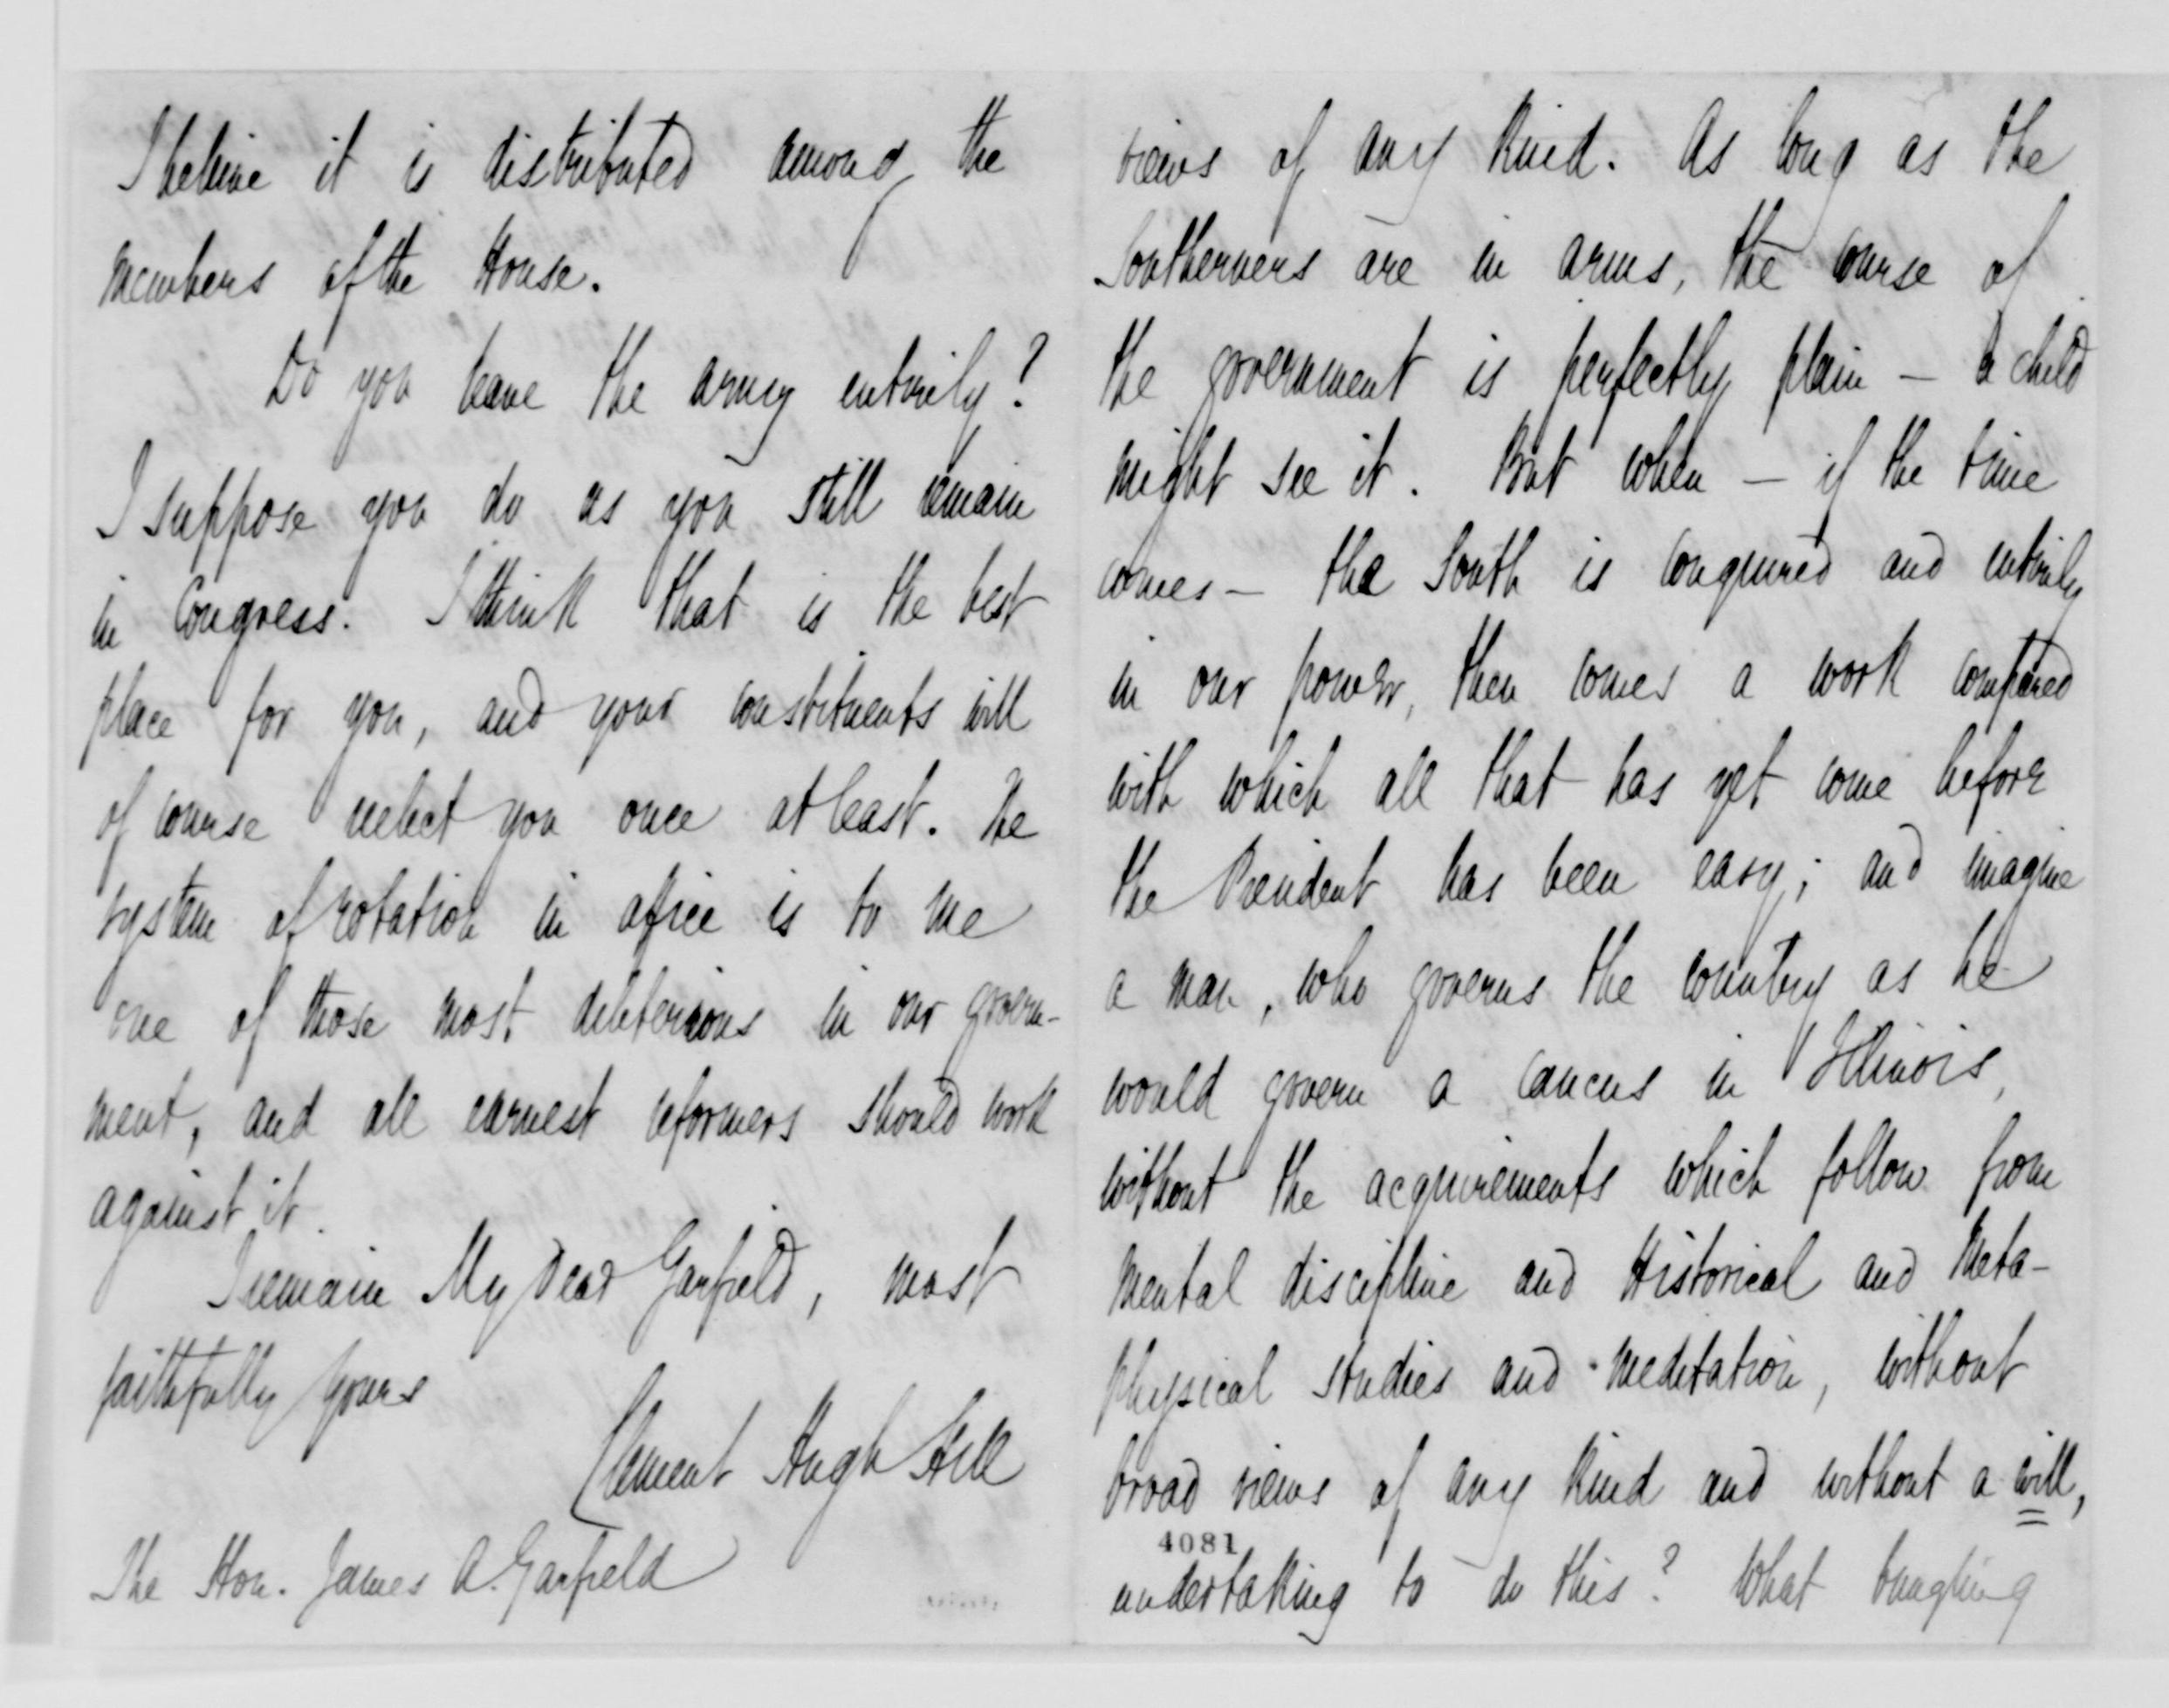 I believe it is distributed among the
members of the House.
Do you leave the army entirely?
I suppose you do as you still remain
in Congress. I think that is the best
place for you, and your constituents will
of course reelect you once at least. The
system of rotation in office is to me
one of those most deleterious in our govern-
ment, and all earnest reformers should work
against it.
I remain My Dear Garfield, most
faithfully yours
Clement Hugh Hill
The Hon. James A. Garfield
views of any kind. As long as the
Southerners are in arms, the course of
the government is perfectly plain — a child
might see it. But when — if the time
comes — the South is conquered and entirely
in our power, then comes a work compared
with which all that has yet come before
the President has been easy; and imagine
a man, who governs the country as he
would govern a caucus in Illinois,
without the acquirements which follow from
mental discipline and Historical and Meta-
physical studies and meditation, without
broad views of any kind and without a will,
4081
undertaking to do this? What bungling